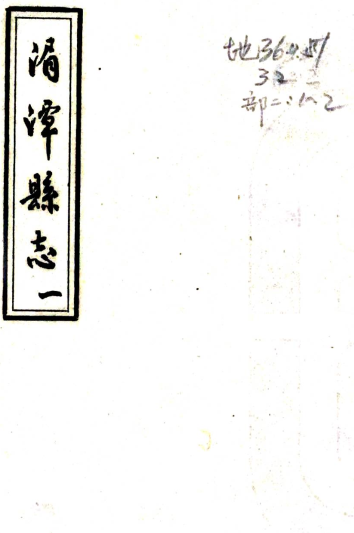 湄潭縣志
一
地36
32
部二:1~2